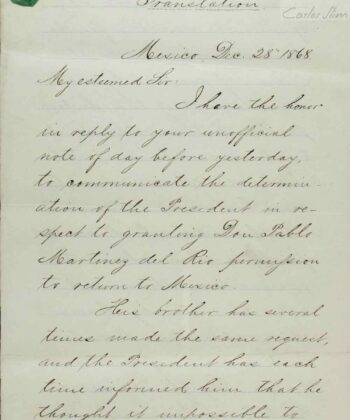 Translation
Carlos Slim
Mexico, Dec. 28th 1868
My esteemed Sir:
I have the honor
in reply to your unofficial
note of day before yesterday,
to communicate the determin-
ation of the President in re-
spect to granting Don Pablo
Martinez del Rio permission
to return to Mexico.
His brother has several
times made the same request,
and the President has each
time informed him that he
thought it impossible to